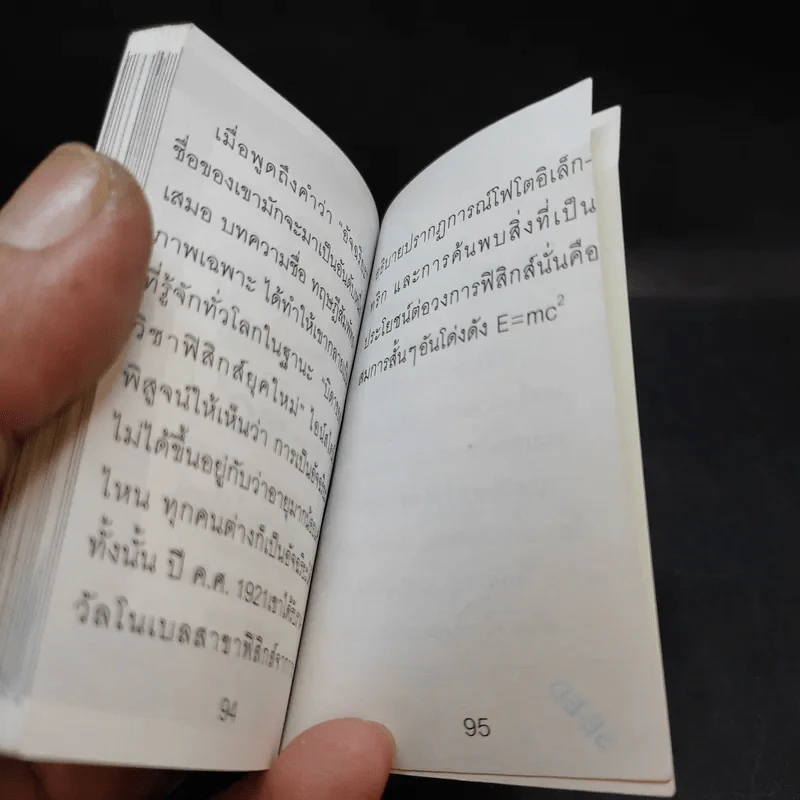 เมื่อพูดถึงคำว่า "อัจฉริยะ
ชื่อของเขามักจะมาเป็นอันดับ
เสมอ บทความชื่อ ทฤษฎีสัมพัทธ
ภาพเฉพาะ ได้ทำให้เขากลายเป็น
ที่รู้จักทั่วโลกในฐานะ "บิดา
วิชาฟิสิกส์ยุคใหม่" ไอน์ส
พิสูจน์ให้เห็นว่า การเป็นอัจฉริยะ
ไม่ได้ขึ้นอยู่กับว่าอายุมากน้อย
ไหน ทุกคนต่างก็เป็นอัจฉริยะ
ทั้งนั้น ปี ค.ศ. 1921เขาได้รับ
วัลโนเบลสาขาฟิสิกส์จาก
94
อธิบายปรากฏการณ์โฟโตอิเล็ก-
ทริก และการค้นพบสิ่งที่เป็น
ประโยชน์ต่อวงการฟิสิกส์นั่นคือ
สมการสั้นๆอันโด่งดัง E=mc²
95